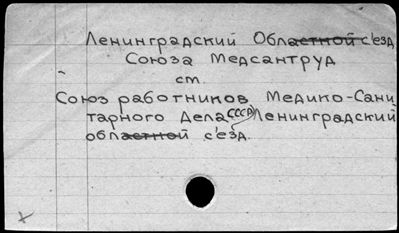 Ленинградский Областной с'езд
Союза Медсантруд
см.
Союз работников Медико-Сани
тарного Дела (СССР) Ленинградский
областной с'езд.